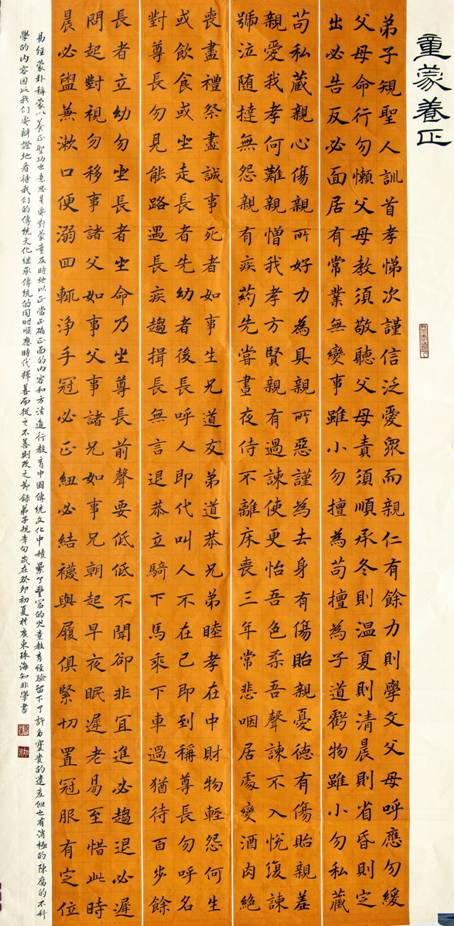 童蒙養正
弟子規聖人訓首孝悌次謹信泛愛眾而親仁有餘力則學文父母呼應勿緩
父母命行勿懶父母教須敬聽父母責須順承冬則溫夏則清晨則省昏則定
出必告反必面居有常業無變事雖小勿擅為苟擅為子道虧物雖小勿私藏
苟私藏親心傷親所好力為具親所惡謹為去身有傷貽親憂德有傷貽親羞
親愛我孝何難親憎我孝方賢親有過諫使更怡吾色柔吾聲諫不入悅復諫
號泣随撻無怨親有疾药先嘗晝夜侍不離床喪三年常悲咽居處變酒肉絕
喪盡禮祭盡誠事死者如事生兄道友弟道恭兄弟睦孝在中財物輕怨何生
或飲食或坐走長者先幼者後長呼人即代叫人不在己即到稱尊長勿呼名
對尊長勿見能路遇長疾趨揖長無言退恭立騎下馬乘下車過猶待百步餘
長者立幼勿坐長者坐命乃坐尊長前聲要低低不聞卻非宜進必趨退必遲
問起對視勿移事諸父如事父事諸兄如事兄朝起早夜眠遲老易至惜此時
晨必盥兼漱口便溺回輒净手冠必正紐必結襪與履俱緊切置冠服有定位
易經蒙卦稱蒙以養正聖功也意思是要對蒙童及時施以正當正確正面的內容和方法進行教育中國傳統文化中積累了豐富的兒童教育經驗留下了許多寶貴的遺產但也有消極的陳腐的不科
學的內容因此我們要辯證地看待我們的傳統文化繼承傳統的同時順應時代擇善而從之不善則改之節錄弟子規章句歲在癸卯初夏於廣東珠海知非學書